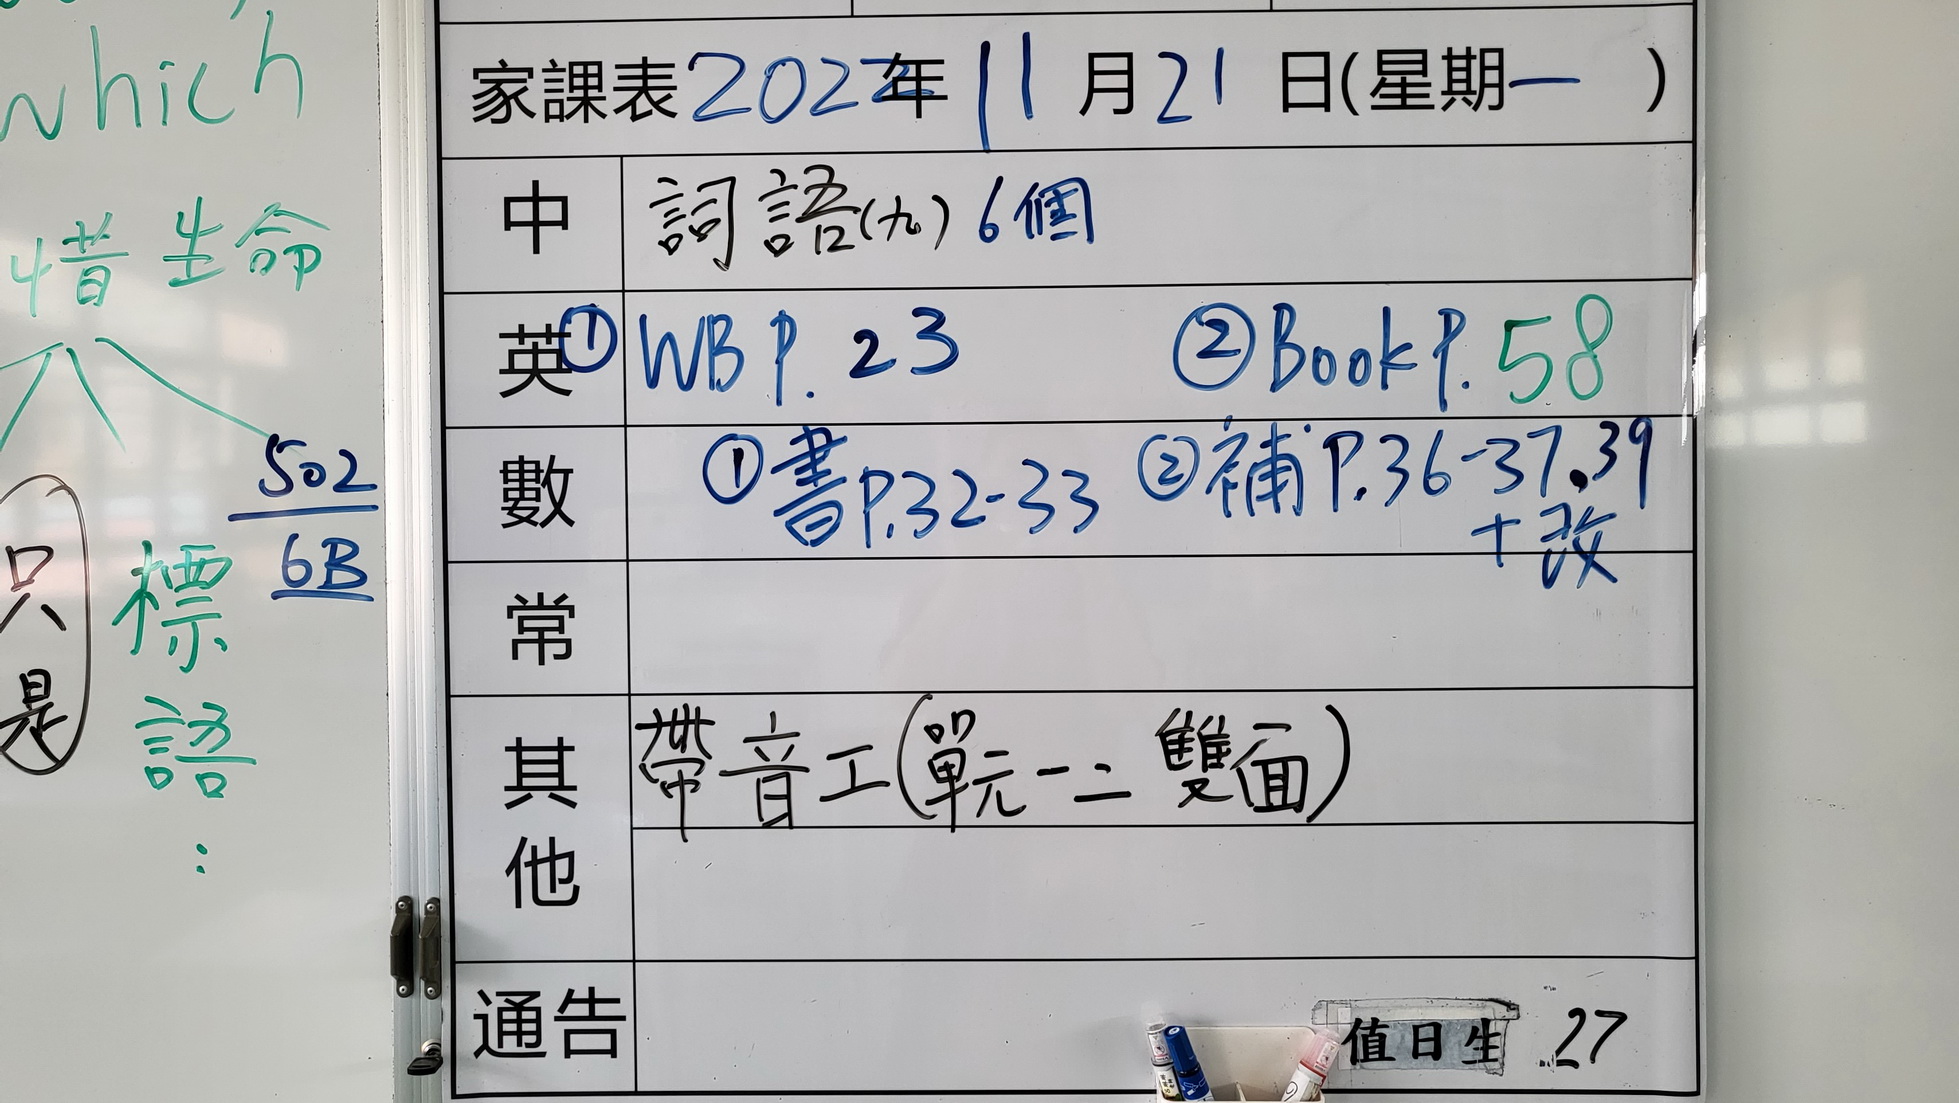 which
惜生命
502
6B
只是
標語：
家課表2022年11月21日(星期一)
中 詞語(九)6個
英 ①WB P.23 ②Book P.58
數 ①書P.32-33 ②補P.36-37.39
+改
常
其他 帶音工(單元一二雙面)
通告
值日生 27